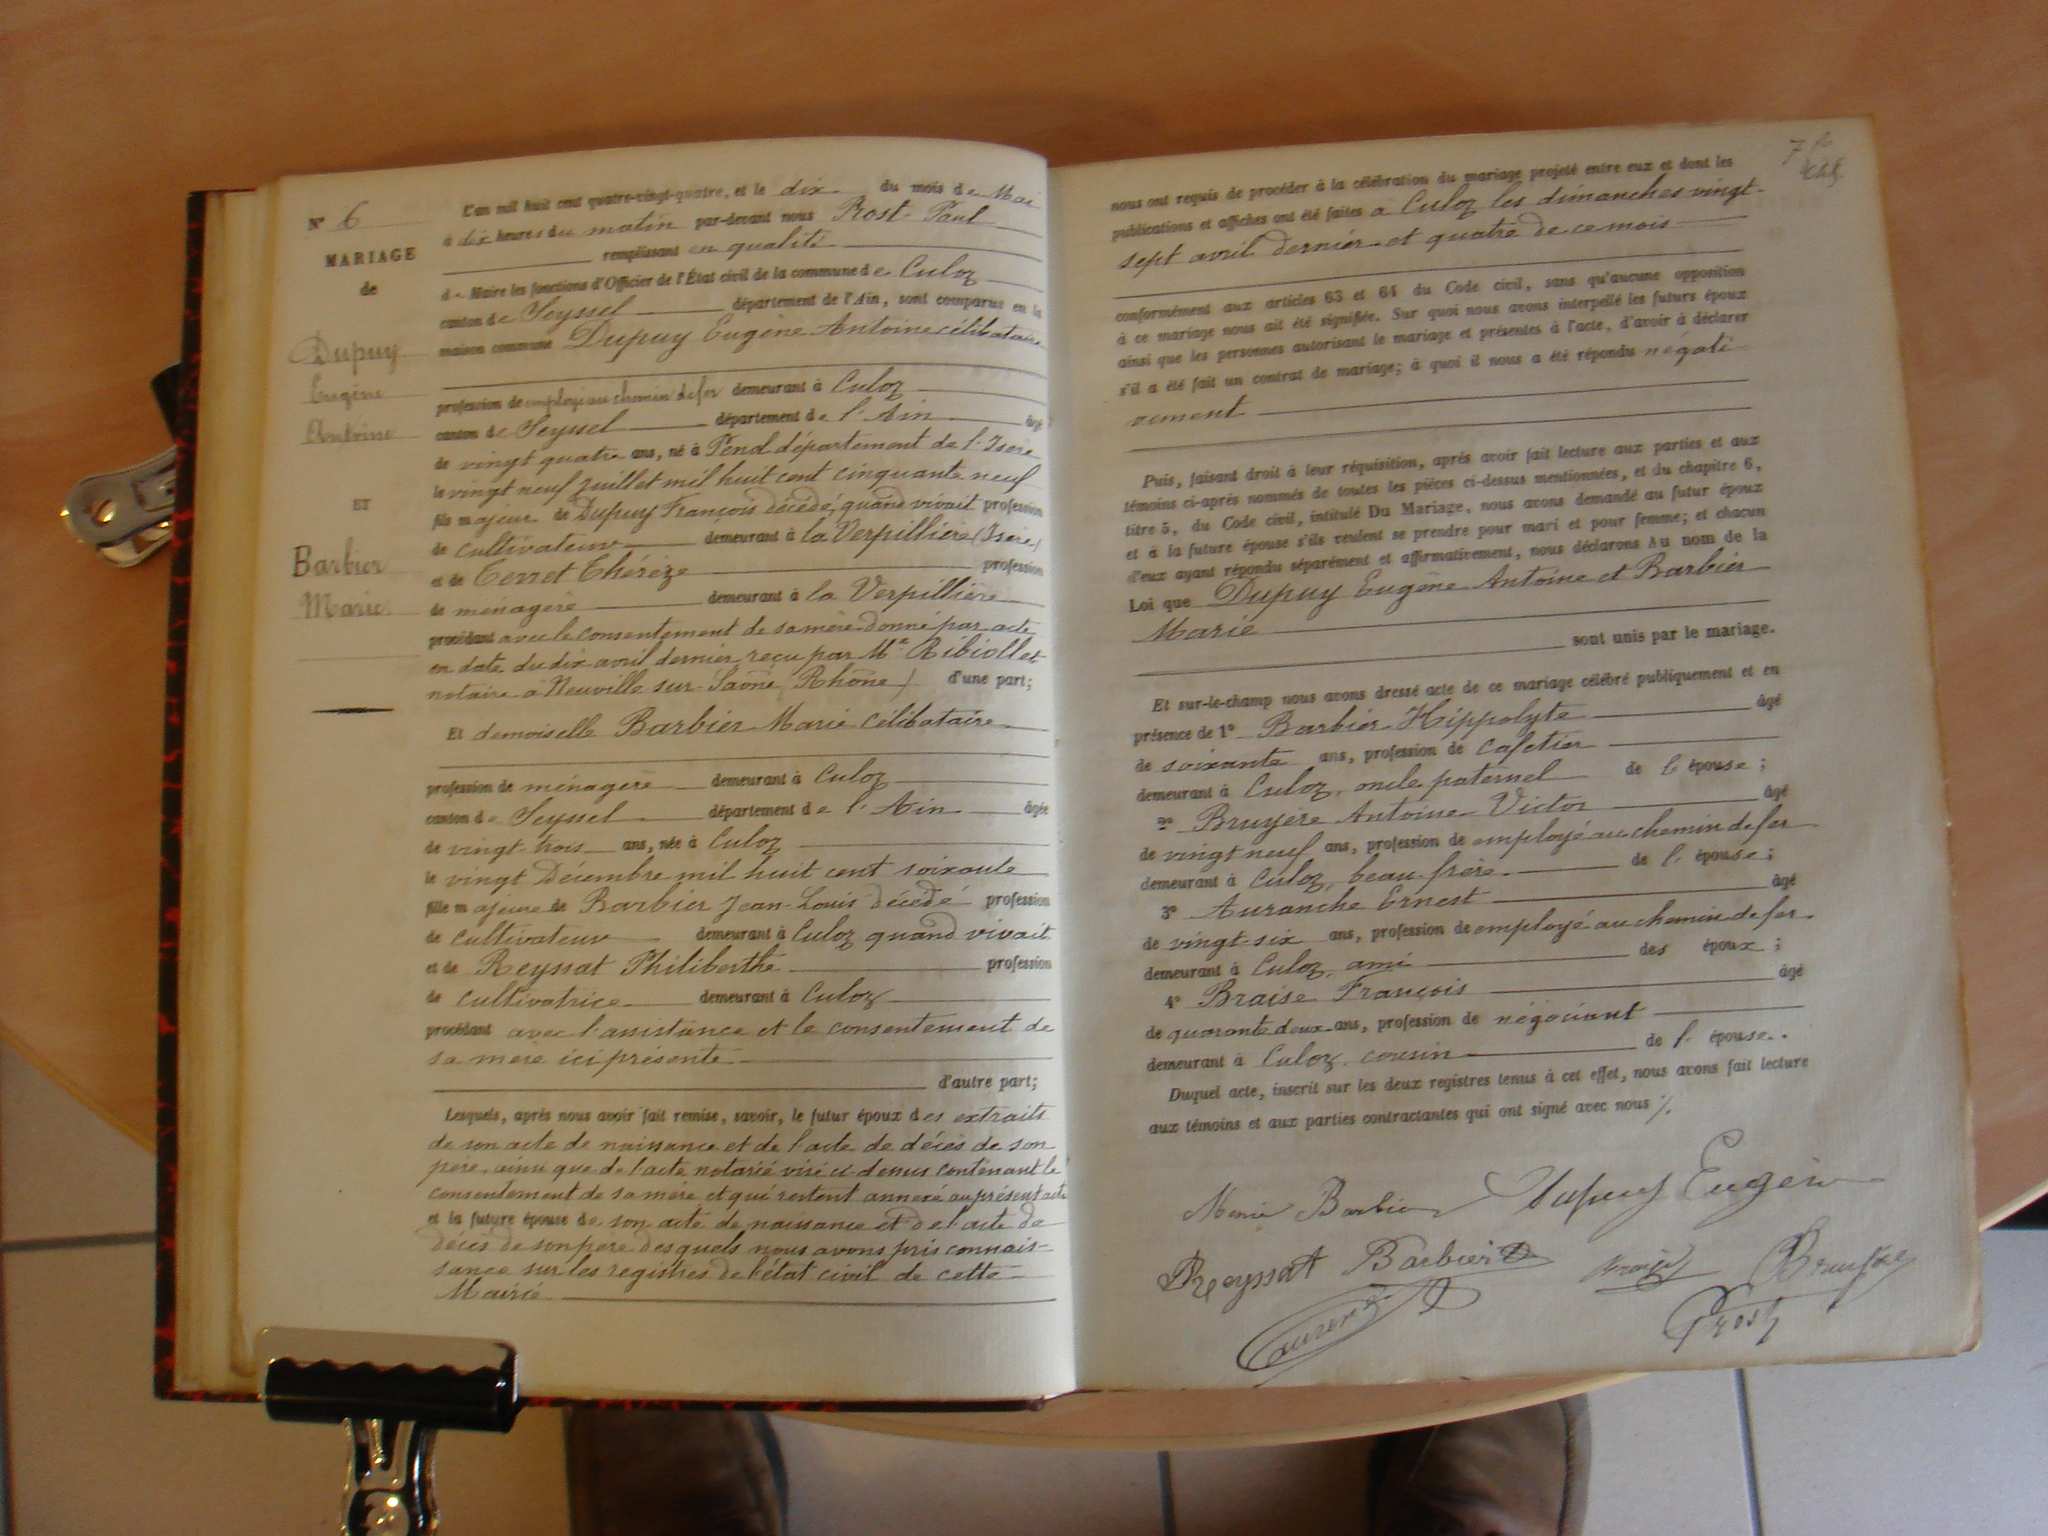 N° 6
MARIAGE
de
Dupuy
Eugène
Antoine
ET
Barbier
Marie
L'an mil huit cent quatre-vingt-quatre, et le dix du mois de Mai
à dix heures du matin par-devant nous Rost Paul
remplissant en qualité
de Maire les fonctions d'Officier de l'État civil de la commune de Culoz
canton de Seyssel département de l'Ain, sont comparus en la
maison commune Dupuy Eugène Antoine célibataire
profession de employé au chemin de fer demeurant à Culoz
canton de Seyssel département de l'Ain âgé
de vingt quatre ans, né à Penol département de l'Isère
le vingt neuf juillet mil huit cent cinquante neuf
fils majeur de Dupuy François décédé, quand vivait profession
de cultivateur demeurant à la Verpillière (Isère)
et de Terret Thérèze profession
de ménagère demeurant à la Verpillière
procédant avec le consentement de sa mère donné par acte
en date du dix avril dernier reçu par Me Ribiollet
notaire à Neuville sur Saône Rhône) d'une part;
Et demoiselle Barbier Marie célibataire
profession de ménagère demeurant à Culoz
canton de Seyssel département de l'Ain âgée
de vingt trois ans, née à Culoz
le vingt Décembre mil huit cent soixante
fille majeure de Barbier Jean-Louis décédé profession
de cultivateur demeurant à Culoz quand vivait
et de Reyssat Philiberthe profession
de cultivatrice demeurant à Culoz
procédant avec l'assistance et le consentement de
sa mère ici présente
d'autre part;
Lesquels, après nous avoir fait remise, savoir, le futur époux des extraits
de son acte de naissance et de l'acte de décès de son
père, ainsi que de l'acte notarié visé ci dessus contenant le
consentement de sa mère et qui restent annexé au présent acte
et la future épouse de son acte de naissance et de l'acte de
décès de son père desquels nous avons pris connais-
sance sur les registres de l'état civil de cette
Mairie
7
nous ont requis de procéder à la célébration du mariage projeté entre eux et dont les
publications et affiches ont été faites à Culoz les dimanches vingt-
sept avril dernier et quatre de ce mois
conformément aux articles 63 et 64 du Code civil, sans qu'aucune opposition
à ce mariage nous ait été signifiée. Sur quoi nous avons interpellé les futurs époux
ainsi que les personnes autorisant le mariage et présentes à l'acte, d'avoir à déclarer
s'il a été fait un contrat de mariage; à quoi il nous a été répondu négati
vement
Puis, faisant droit à leur réquisition, après avoir fait lecture aux parties et aux
témoins ci-après nommés de toutes les pièces ci-dessus mentionnées, et du chapitre 6,
titre 5, du Code civil, intitulé Du Mariage, nous avons demandé au futur époux
et à la future épouse s'ils veulent se prendre pour mari et pour femme; et chacun
d'eux ayant répondu séparément et affirmativement, nous déclarons Au nom de la
Loi que Dupuy Eugène Antoine et Barbier
Marie
sont unis par le mariage.
Et sur-le-champ nous avons dressé acte de ce mariage célébré publiquement et en
présence de 1° Barbier Hippolyte âgé
de soixante ans, profession de cafetier
demeurant à Culoz, oncle paternel de l'épouse;
2° Bruyère Antoine Victor âgé
de vingt neuf ans, profession de employé au chemin de fer
demeurant à Culoz, beau-frère de l'épouse;
3° Auranche Ernest âgé
de vingt-six ans, profession de employé au chemin de fer
demeurant à Culoz, ami des époux;
4° Braise François âgé
de quarante deux ans, profession de négociant
demeurant à Culoz, cousin de l'épouse.
Duquel acte, inscrit sur les deux registres tenus à cet effet, nous avons fait lecture
aux témoins et aux parties contractantes qui ont signé avec nous
Marie Barbier Dupuy Eugène
Reyssat Barbier Bruyère
Rost